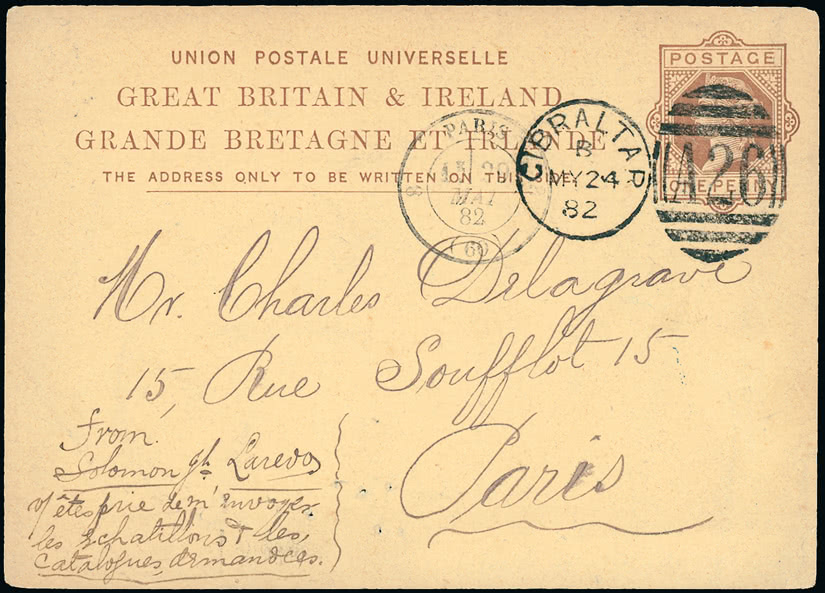 UNION POSTALE UNIVERSELLE
GREAT BRITAIN & IRELAND
GRANDE BRETAGNE ET IRLANDE
THE ADDRESS ONLY TO BE WRITTEN ON THIS
POSTAGE
ONE PENNY
A26
GIBRALTAR
B
MY 24
82
PARIS
MAI
82
60
Mr. Charles Delagrave
15, Rue Soufflot 15
Paris
From.
Solomon Laredo
êtes prié de m'envoyer
les echatillons & les
Catalogues, demandées.